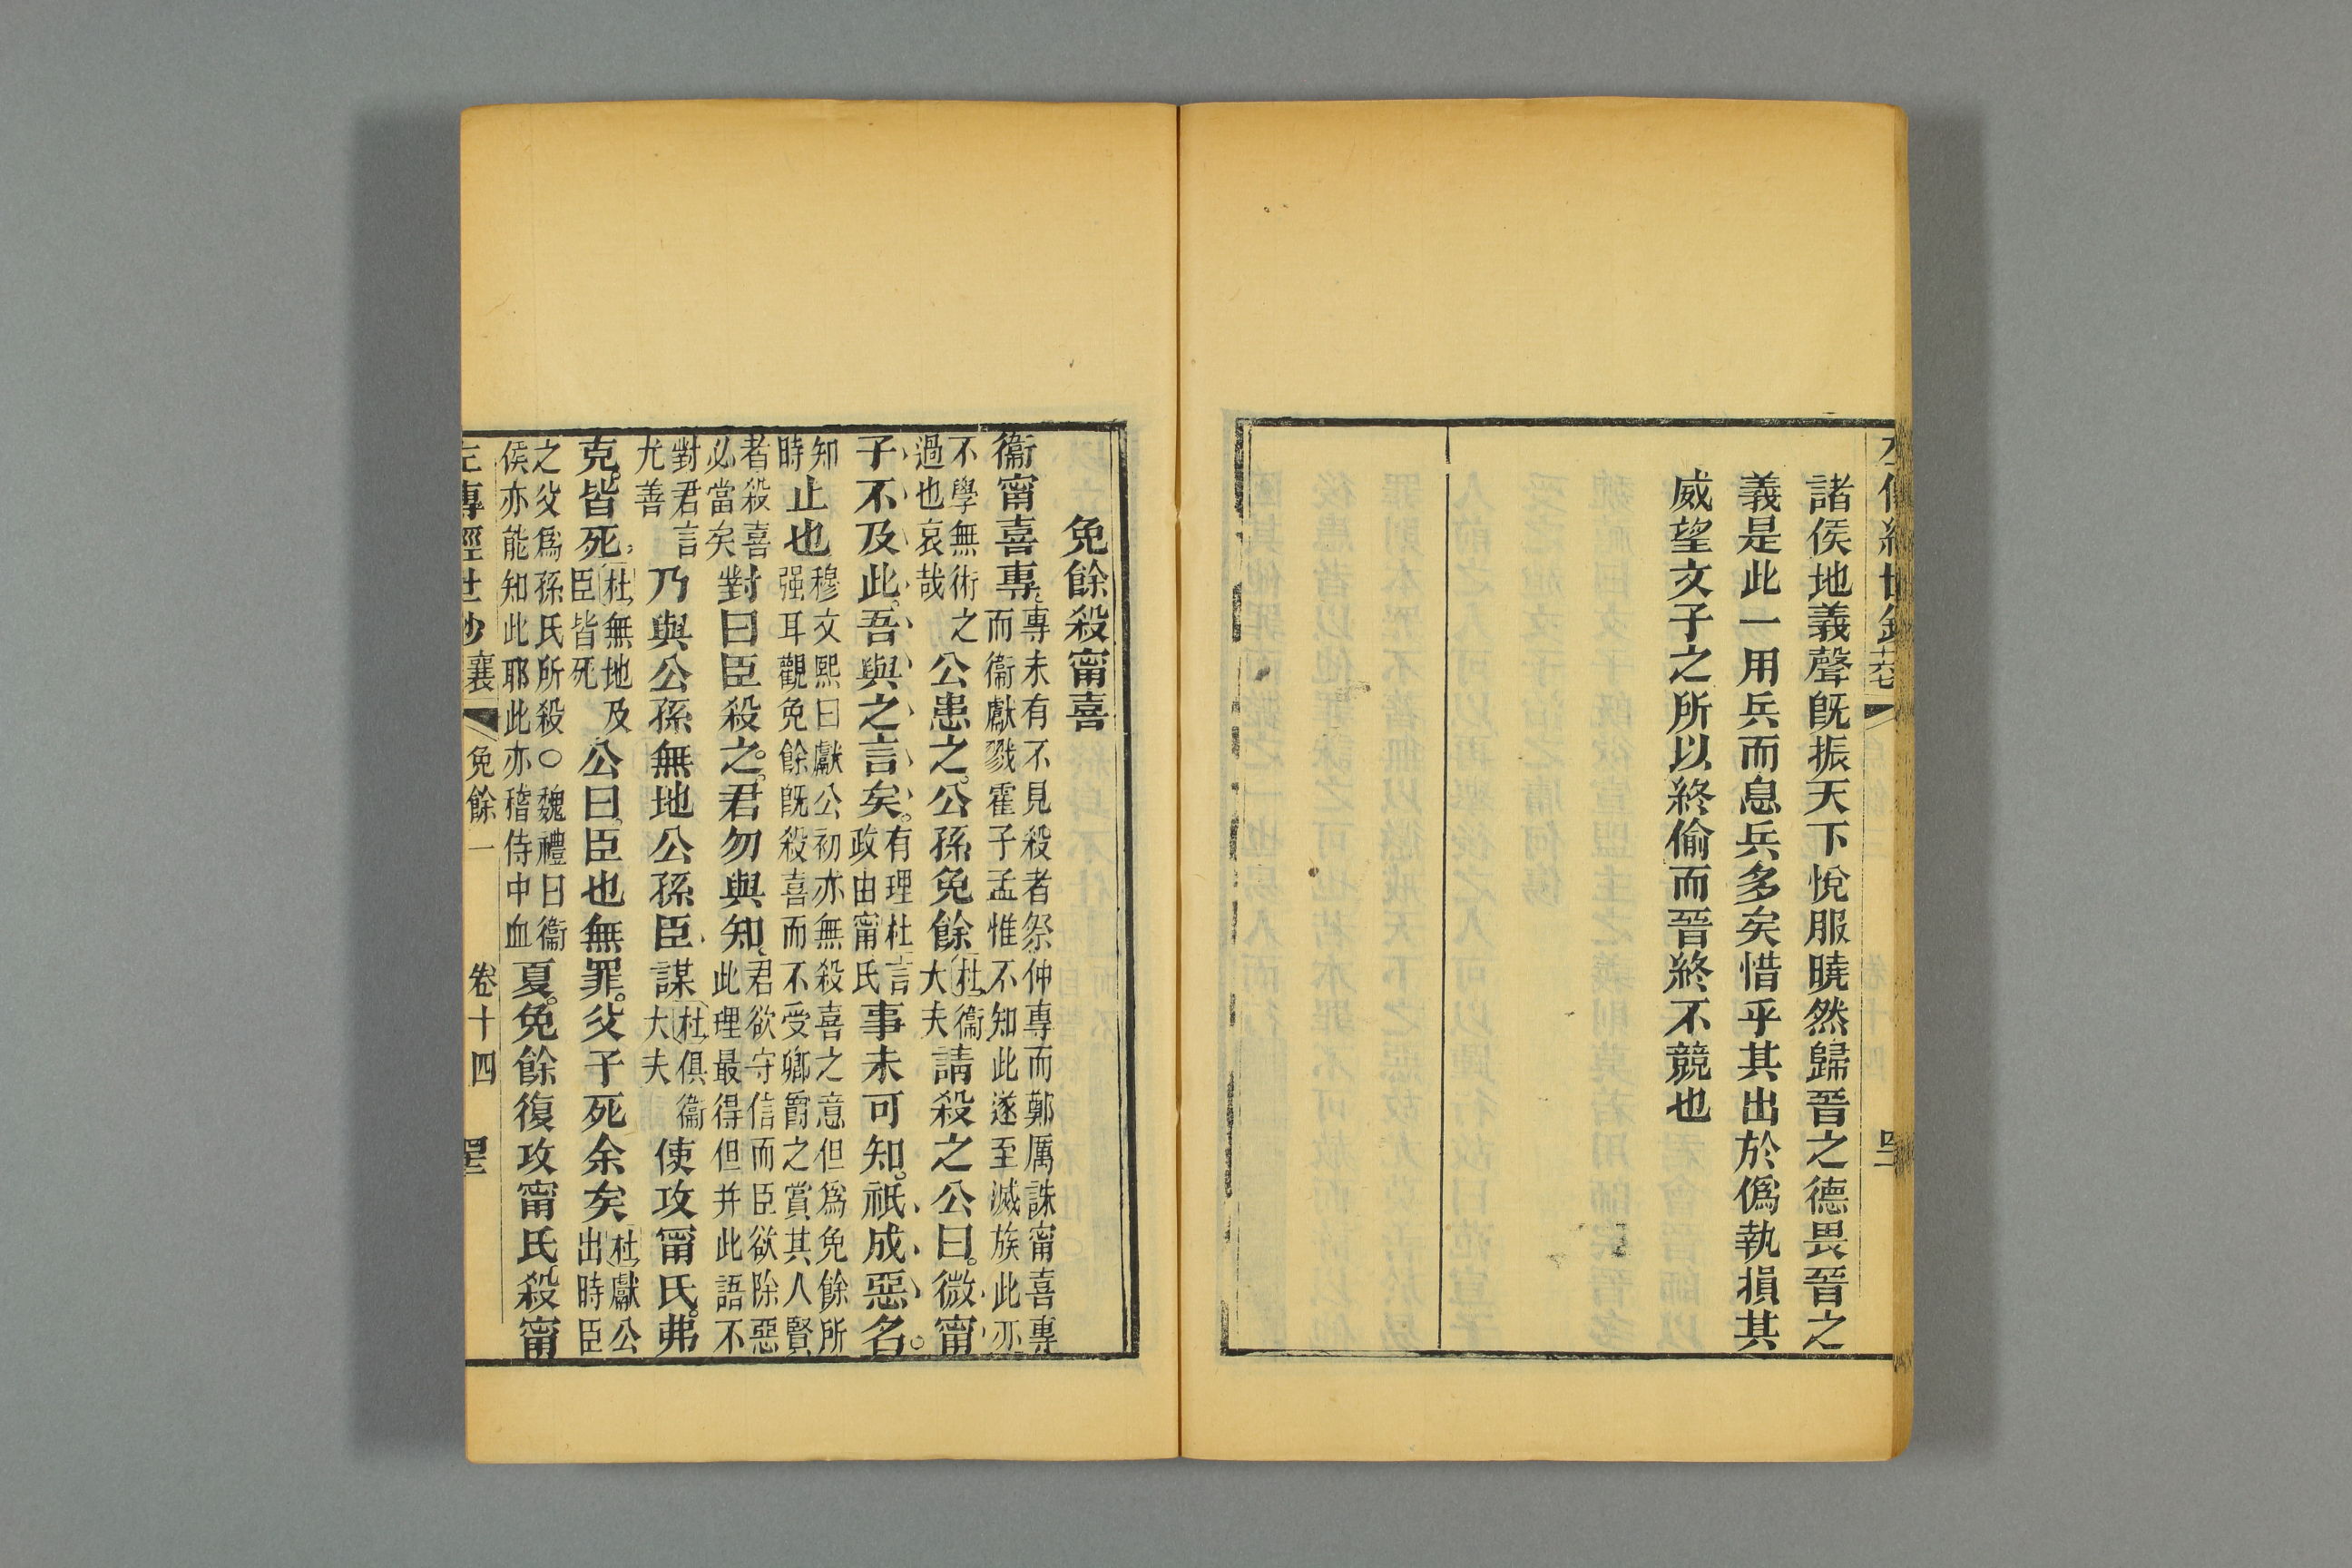 諸侯地義聲旣振天下悅服曉然歸晉之德畏晉之
義是此一用兵而息兵多矣惜乎其出於僞執損其
威望文子之所以終偷而晉終不競也
免餘殺甯喜
衞甯喜專專未有不見殺者祭仲專而鄭厲誅甯喜專
而衞獻戮霍子孟惟不知此遂至滅族此亦
不學無術之
過也哀哉
公患之公孫免餘杜衞
大夫
請殺之公曰微甯
子不及此吾與之言矣有理杜言
政由甯氏
事未可知祇成惡名
知
時
止也穆文熙曰獻公初亦無殺喜之意但爲免餘所
强耳觀免餘旣殺喜而不受卿爵之賞其人賢
者殺喜
必當矣
對曰臣殺之君勿與知君欲守信而臣欲除惡
此理最得但并此語不
對君言
尤善
乃與公孫無地公孫臣謀杜俱衞
大夫
使攻甯氏弗
克皆死杜無地及
臣皆死
公曰臣也無罪父子死余矣杜獻公
出時臣
之父爲孫氏所殺○魏禮曰衞
侯亦能知此耶此亦稽侍中血
夏免餘復攻甯氏殺甯
襄
免餘一
卷十四